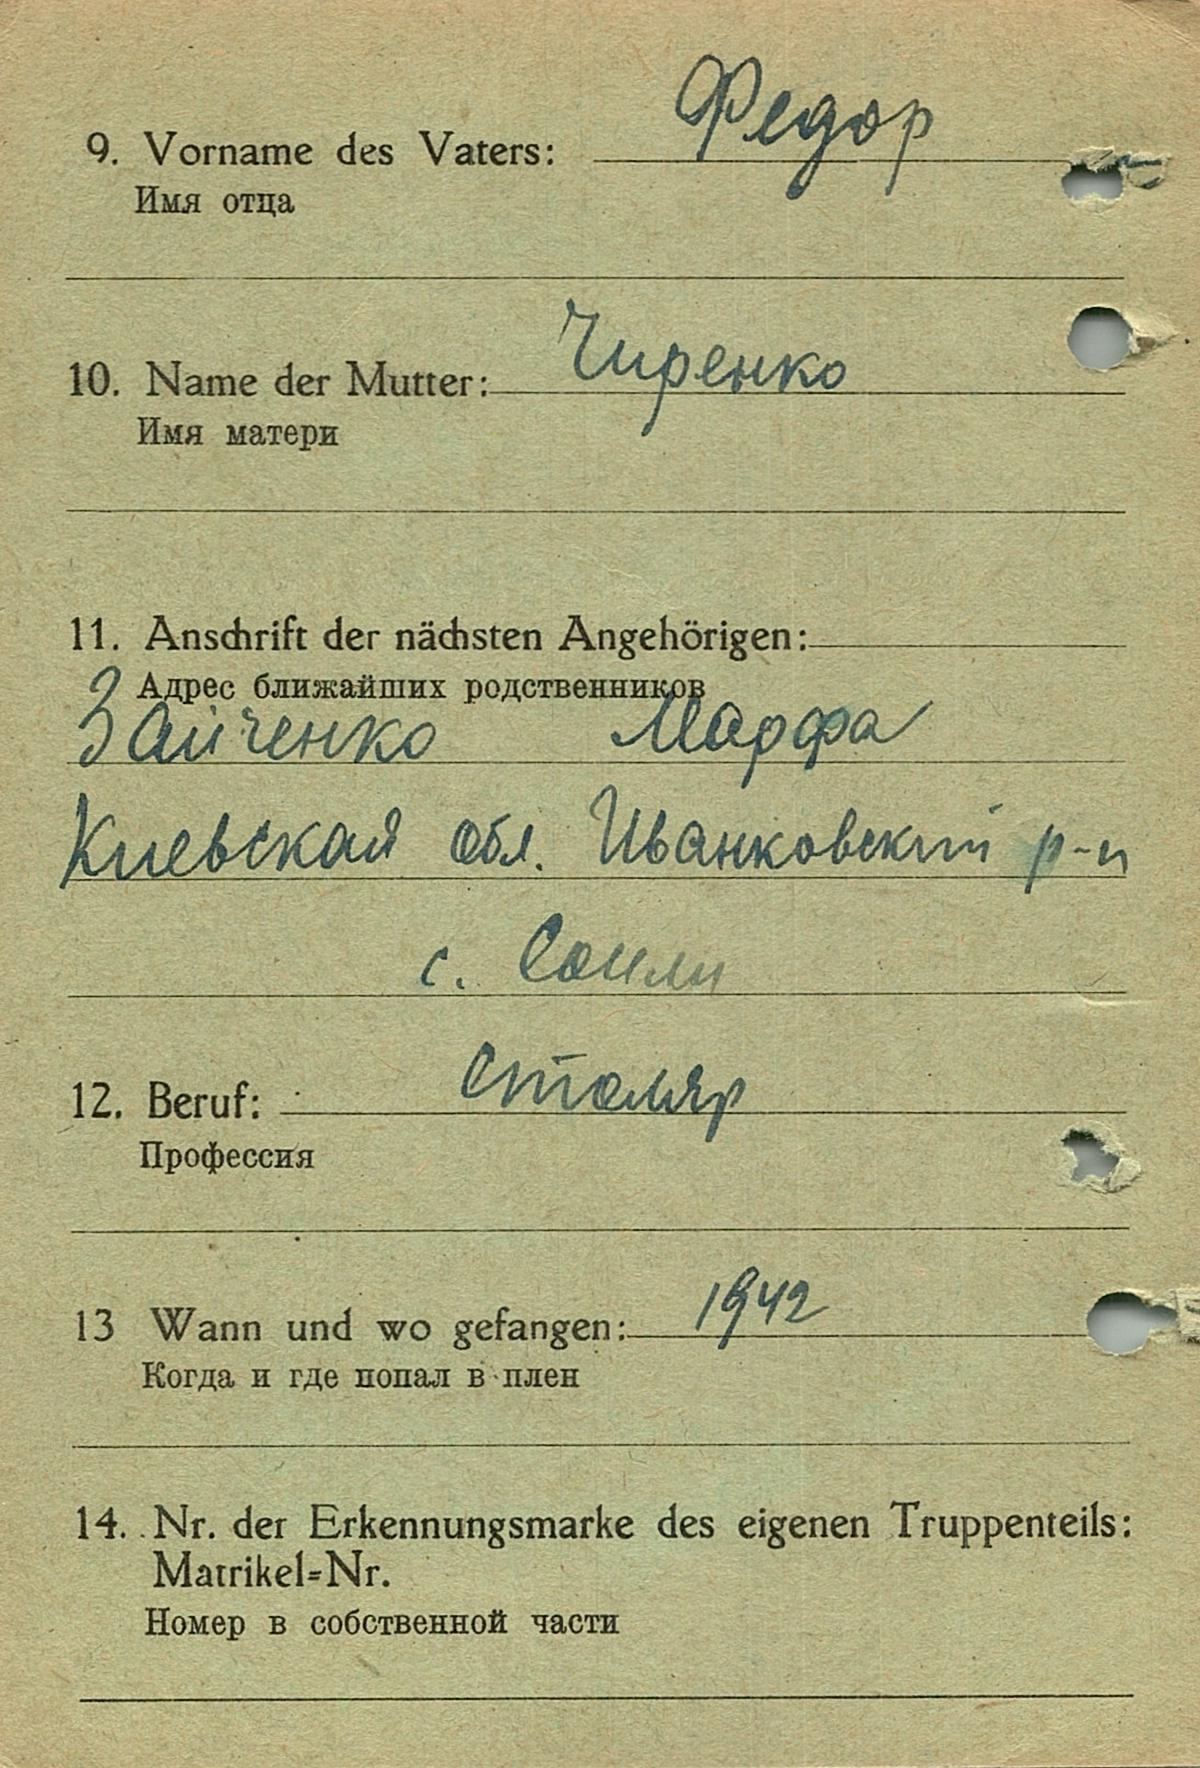 9. Vorname des Vaters: Федор
Имя отца
10. Name der Mutter: Чиренко
Имя матери
11. Anschrift der nächsten Angehörigen:
Адрес ближайших родственников
Зайченко Марфа
Киевская обл. Иванковский р-н
с.
12. Beruf: столяр
Профессия
13 Wann und wo gefangen: 1942
Когда и где попал в плен
14. Nr. der Erkennungsmarke des eigenen Truppenteils:
Matrikel-Nr.
Номер в собственной части